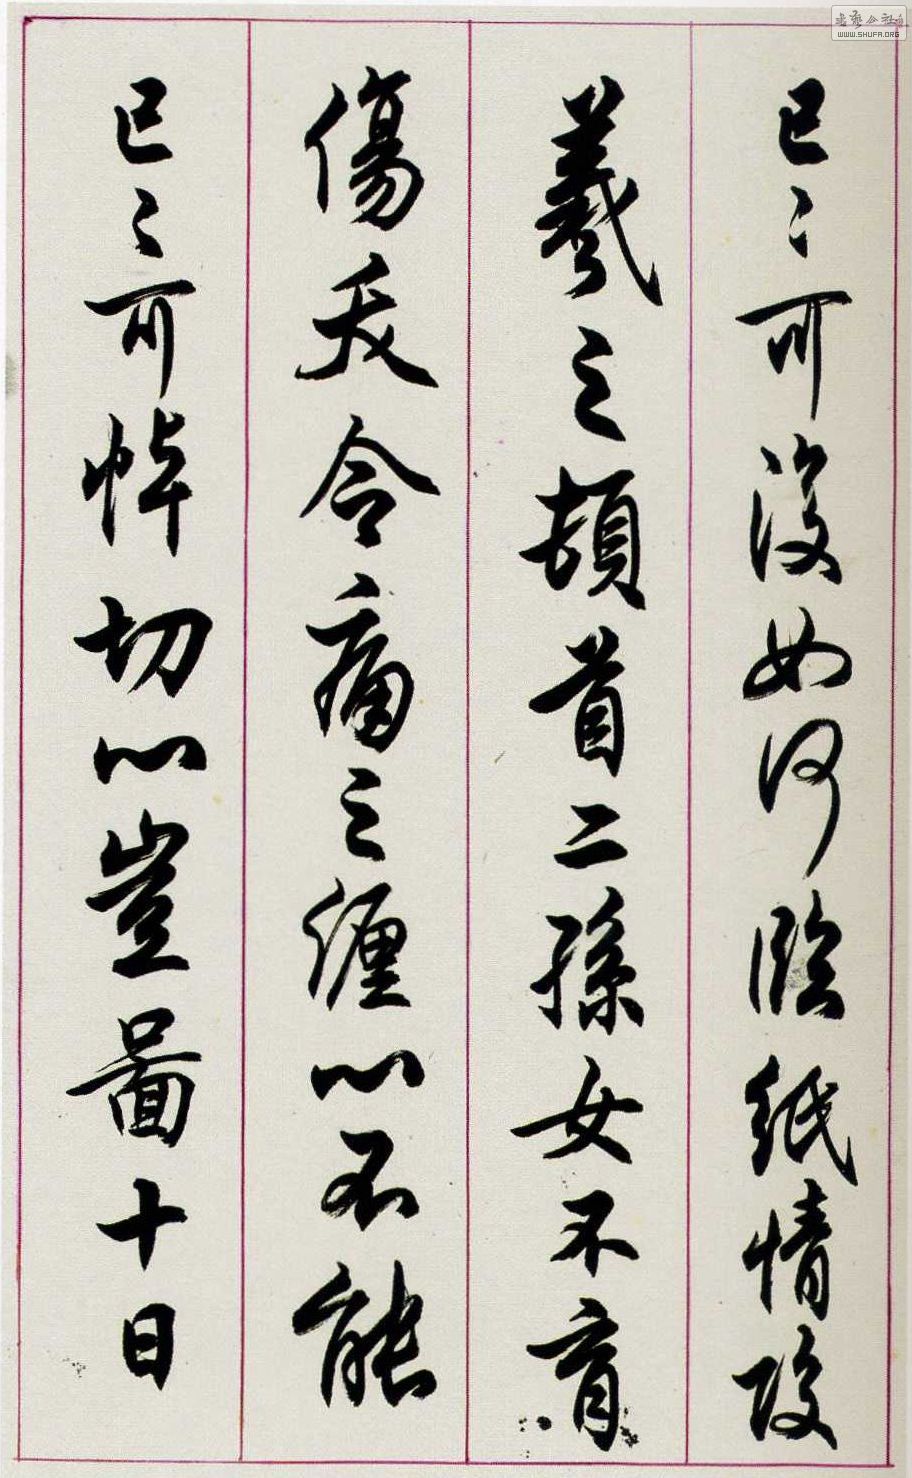 書藝公社
WWW.SHUFA.ORG
已〻可復如何臨紙情酸
羲之頓首二孫女不育
傷令痛之纏心不能
已〻可悼切心豈圖十日